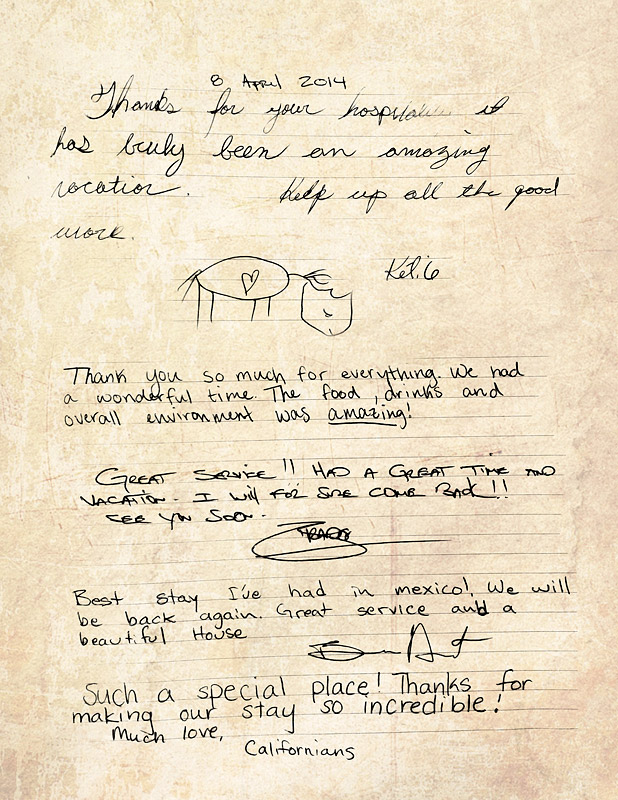 8 April 2014
Thanks for your hospital it
has truly been an amazing
vacation. Keep up all the good
work.
Thank you so much for everything. We had
a wonderful time. The food, drinks and
overall environment was amazing!
GREAT SERVICE!! HAD A GREAT TIME AND
VACATION. I will FOR SURE COME BACK!!
SEE YOU SOON.
Best stay I've had in mexico! We will
be back again. Great service and a
beautiful House
Such a special place! Thanks for
making our stay so incredible!
Much love,
Californians